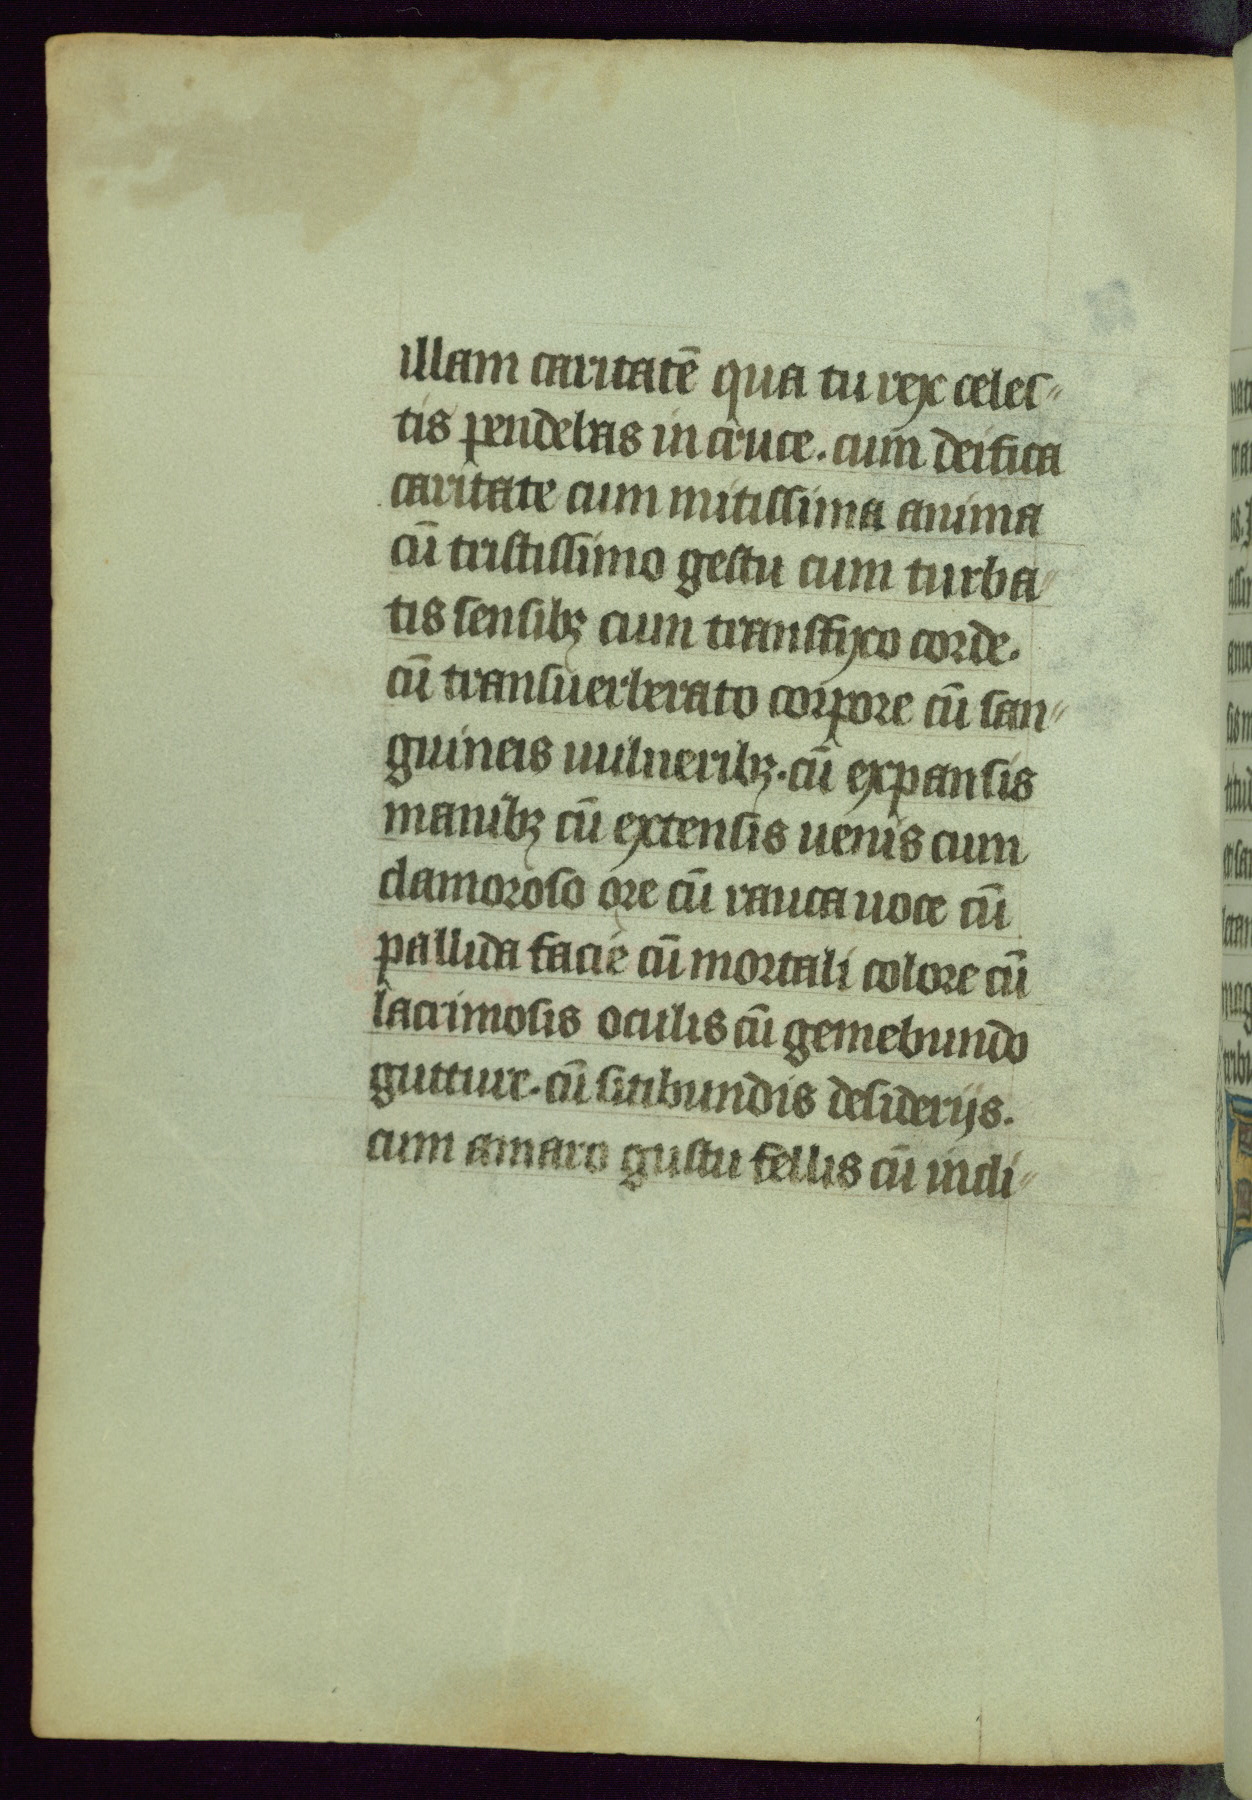 illam caritatē qua tu rex celes-
tis pendebas in cruce. cum deifica
caritate cum mitissima anima
cū tristissimo gestu cum turba-
tis sensibꝫ cum transfixo corde.
cū transuerberato corpore cū san-
guineis uulneribꝫ. cū expansis
manibꝫ cū extensis uenis cum
clamoroso ore cū rauca uoce cū
pallida facie cū mortali colore cū
lacrimosis oculis cū gemebundo
gutture. cū sitibundis desiderijs.
cum amaro gustu fellis cū incli-